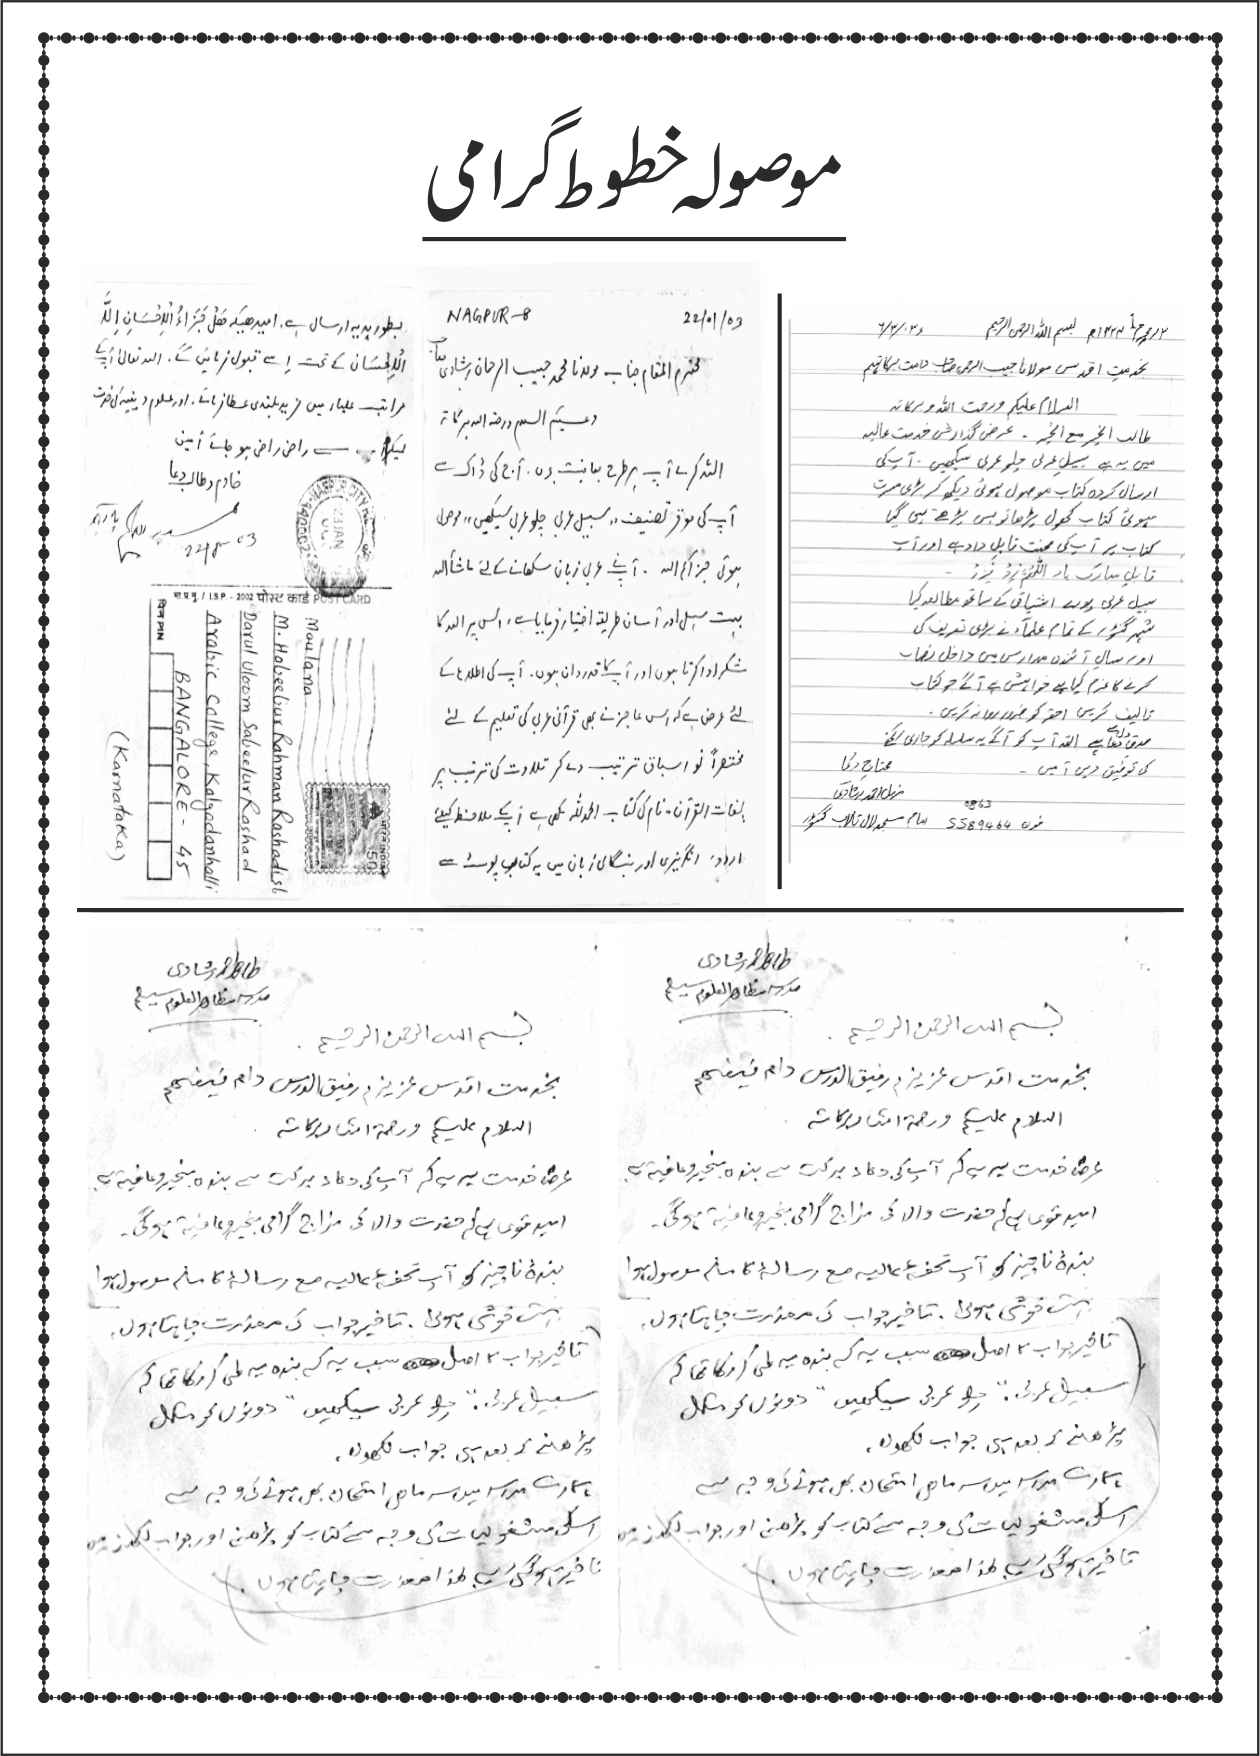 موصولہ خطوط گرامی
۶/۳/۰۳ء بسم اللہ الرحمن الرحیم ۲/محرم ۱۴۲۴ھ
بخدمت اقدس مولانا حبیب الرحمن صاحب دامت برکاتہم
السلام علیکم ورحمت اللہ وبرکاتہ
طالب الخیر مع الخیر ۔ عرض گذارش خدمت عالیہ
میں یہ ہے سبیل عربی چلو عربی سیکھیں ۔ آپ کی
ارسال کردہ کتاب موصول ہوئی دیکھ کر بڑی مسرت
ہوئی کتاب کھول پڑھا تو بس پڑھتے ہی گیا
کتاب پر آپ کی محنت قابل داد ہے اور آپ
قابل مبارک باد اللھم زد فزد ۔
سبیل عربی پورے اشتیاق کے ساتھ مطالعہ کیا
شہر کے تمام علماء نے بڑی تعریف کی
اور سال آئندہ مدارس میں داخل نصاب
کرنے کا عزم کیا ہے خواہش ہے آگے جو کتاب
تالیف کریں احقر کو ضرور روانہ کریں ۔
اللہ آپ کو آگے یہ سلسلہ کو جاری رکھنے
کی توفیق دیں آمین ۔ محتاج دعا
احمد رشادی
0863
فون 5589464 امام مسجد لال تالاب
NAGPUR-8 22/01/03
محترم المقام جناب مولانا محمد حبیب الرحمان رشادی صاحب
وعلیکم السلام ورحمۃ اللہ برکاتہ
اللہ کرے آپ ہر طرح بعافیت ہوں ۔ آج کی ڈاک سے
آپ کی موقر تصنیف ،، سبیل عربی چلو عربی سیکھیں ،، موصول
ہوئی جزاکم اللہ ۔ آپنے عربی زبان سکھانے کے لئے ماشأاللہ
بہت سہل اور آسان طریقہ اختیار فرمایا ہے، اس پر اللہ کا
شکر ادا کرتا ہوں اور آپ کا قدردان ہوں ۔ آپ کی اطلاع کے
لئے عرض ہے کہ اس عاجز نے بھی قرآنی عربی کی تعلیم کے لئے
مختصراً نو اسباق ترتیب دے کر تلاوت کی ترتیب پر
لغات القرآن ۔ نام کی کتاب الحمدللہ لکھی ہے آپکے ملاحظہ کیلئے
اردو، انگریزی اور بنگالی زبان میں یہ کتاب پوسٹ سے
بطور ہدیہ ارسال ہے ۔ امید ھیکہ ھَلْ جَزَاءُ الْاِحْسَانِ اِلَّا
الْاِحْسَان کے تحت اسے قبول فرمائیں گے ۔ اللہ تعالیٰ آپکے
مراتب علیاء میں مزید بلندی عطا فرمائے ۔ اور علوم دینیہ کی خدمت
لیکر سے راضی راضی ہو جائے آمین
خادم و طالب دعا
22/1/03
NAGPUR CITY
440002
23 JAN
I.S.P. - 2002 पोस्ट कार्ड POST CARD
पिन PIN
Moulana
M. Habeebur Rahman Rashadi sb
Darul Uloom Sabeelur Rashad
Arabic College, Kalyadanhalli
BANGALORE - 45
(Karnataka)
50
रشادی
مدرسہ مظاہر العلوم سیلم
بسم اللہ الرحمن الرحیم ۔
بخدمت اقدس عزیزم رفیق الدرس دام فیضہم
السلام علیکم ورحمۃ اللہ وبرکاتہ
عرض خدمت یہ ہے کہ آپ کی دعاء برکت سے بندہ بخیر وعافیۃ ہے
امید قوی ہے کہ حضرت والا کی مزاج گرامی بخیر وعافیۃ ہوگی۔
بندۂ ناچیز کو آپ تحفۂ عالیہ مع رسالۂ کاملہ موصول ہوا
بہت خوشی ہوئی ۔ تاخیر جواب کی معذرت چاہتا ہوں،
تاخیر جواب کا اصل سبب یہ کہ بندہ یہ طی کر رکھا تھا کہ
سبیل عربی ،" چلو عربی سیکھیں " دونوں کو مکمل
پڑھنے کے بعد ہی جواب لکھوں،
ہمارے مدرسہ میں سہ ماہی امتحان بھی ہونے کی وجہ سے
اسکی مشغولیات کی وجہ سے کتاب کو پڑھنے اور جواب لکھنے میں
تاخیر ہوگئی ہے لھذا معذرت چاہتا ہوں ۔
رشادی
مدرسہ مظاہر العلوم سیلم
بسم اللہ الرحمن الرحیم ۔
بخدمت اقدس عزیزم رفیق الدرس دام فیضہم
السلام علیکم ورحمۃ اللہ وبرکاتہ
عرض خدمت یہ ہے کہ آپ کی دعاء برکت سے بندہ بخیر وعافیۃ ہے
امید قوی ہے کہ حضرت والا کی مزاج گرامی بخیر وعافیۃ ہوگی۔
بندۂ ناچیز کو آپ تحفۂ عالیہ مع رسالۂ کاملہ موصول ہوا
بہت خوشی ہوئی ۔ تاخیر جواب کی معذرت چاہتا ہوں،
تاخیر جواب کا اصل سبب یہ کہ بندہ یہ طی کر رکھا تھا کہ
سبیل عربی ،" چلو عربی سیکھیں " دونوں کو مکمل
پڑھنے کے بعد ہی جواب لکھوں،
ہمارے مدرسہ میں سہ ماہی امتحان بھی ہونے کی وجہ سے
اسکی مشغولیات کی وجہ سے کتاب کو پڑھنے اور جواب لکھنے میں
تاخیر ہوگئی ہے لھذا معذرت چاہتا ہوں ۔